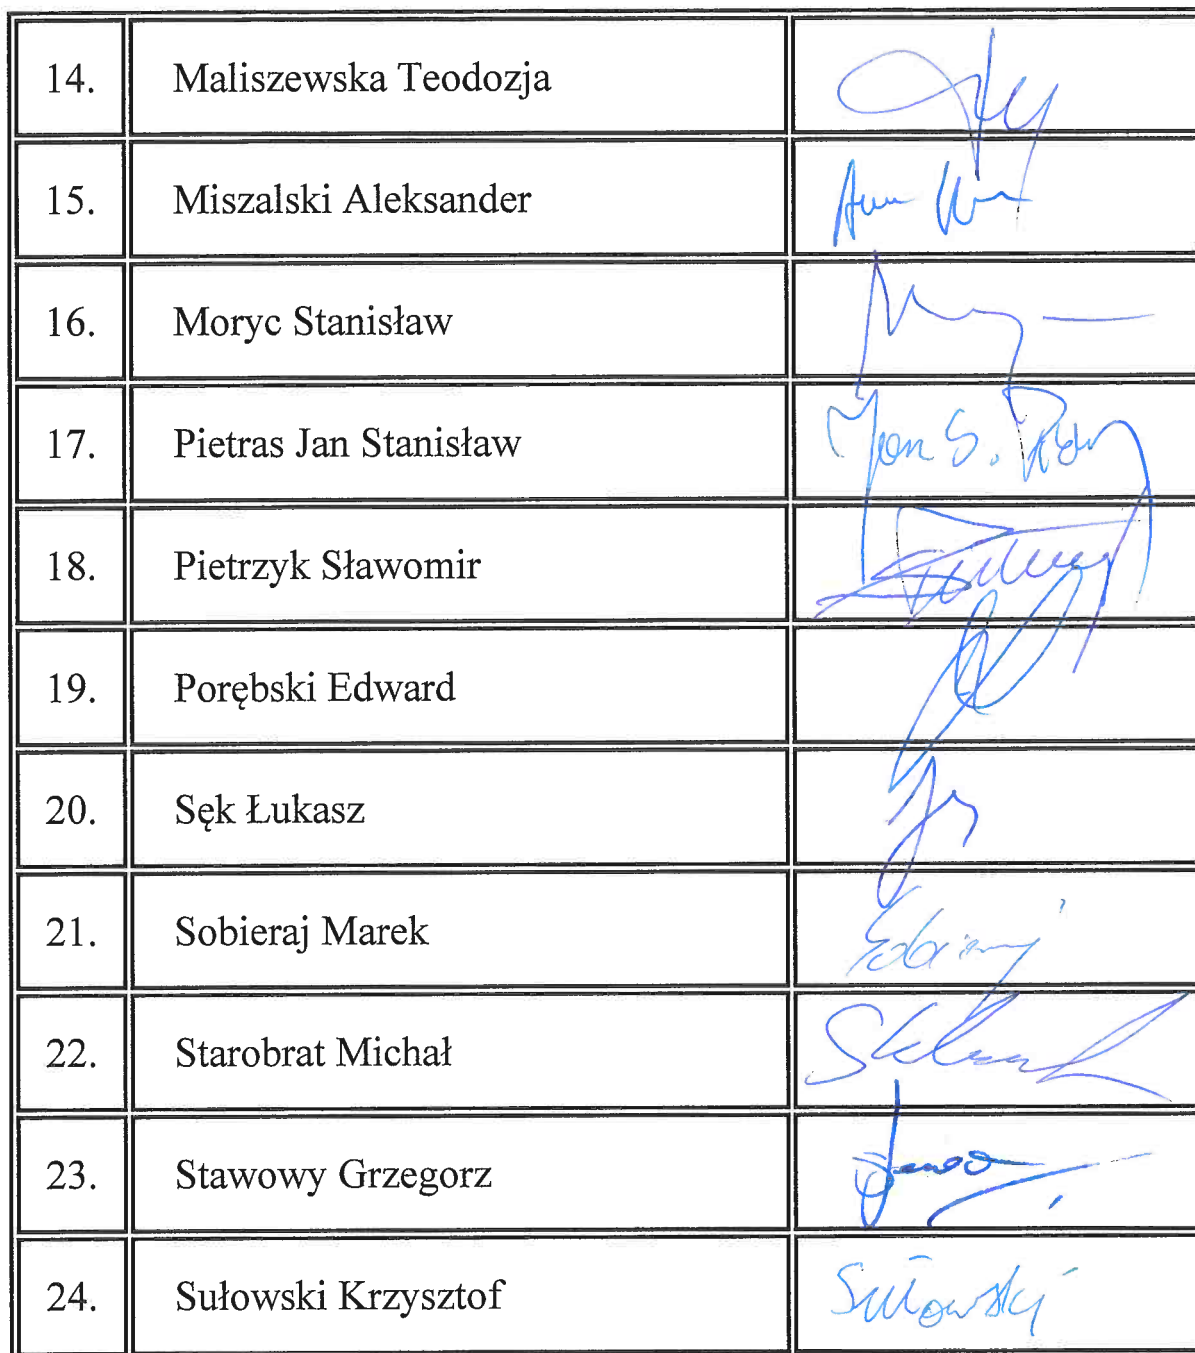 14. Maliszewska Teodozja
15. Miszalski Aleksander
16. Moryc Stanisław
17. Pietras Jan Stanisław Jan S.
18. Pietrzyk Sławomir
19. Porębski Edward
20. Sęk Łukasz
21. Sobieraj Marek
22. Starobrat Michał
23. Stawowy Grzegorz
24. Sułowski Krzysztof Sułowski